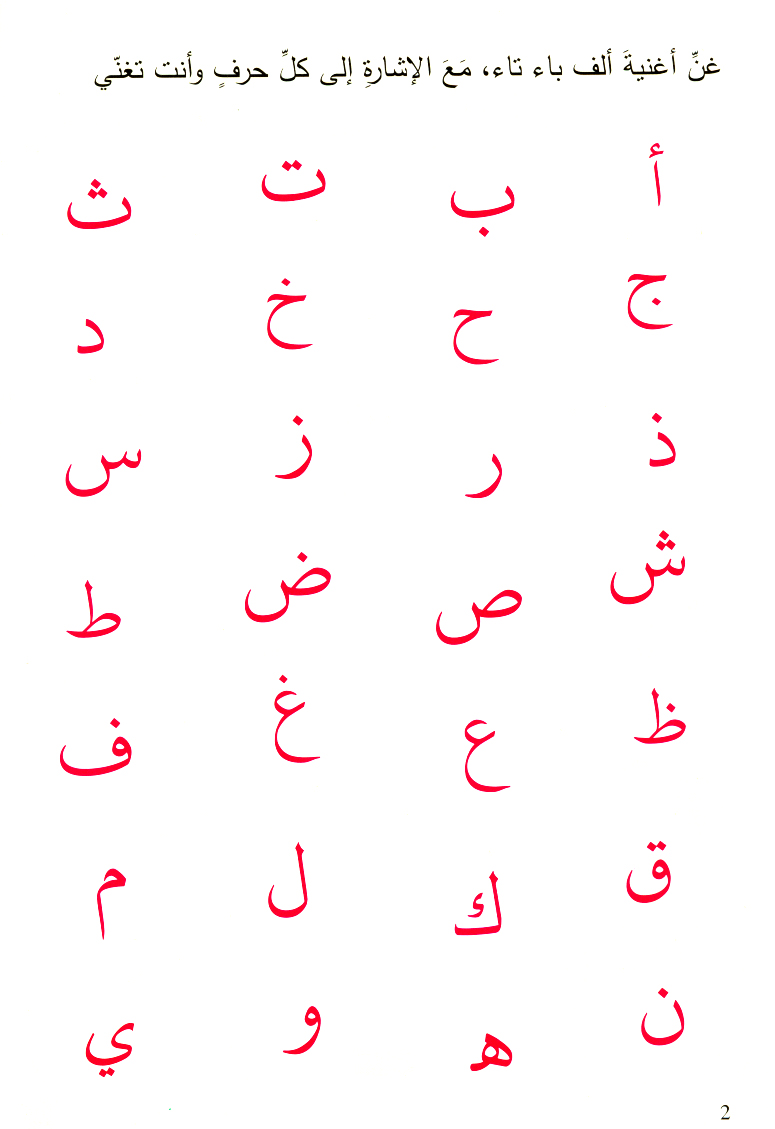 غنِّ أغنيةَ ألف باء تاء، مَعَ الإشارةِ إلى كلِّ حرفٍ وأنت تغنّي
أ ب ت ث
ج ح خ د
ذ ر ز س
ش ص ض ط
ظ ع غ ف
ق ك ل م
ن ه و ي
2